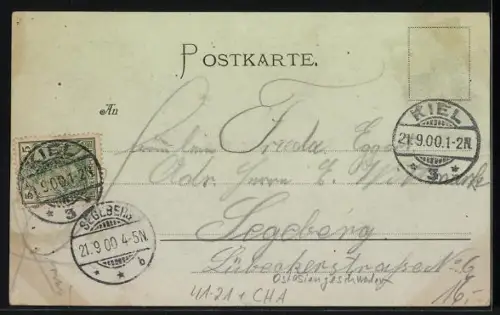 POSTKARTE.
An
Fräulein Frieda
Adr. Herrn
Segeberg
Lübeckerstraße No 6
Ostasiengeschwader
41-21 + CHA
16,-
KIEL
21.9.00.1-2N
* 3 *
KIEL
.9.00.1-2
* 3
SEGEBERG
21.9.00 4-5N
* * b